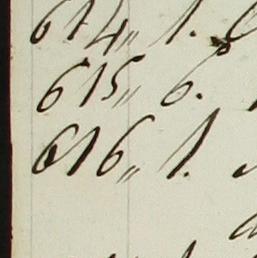 614,, 1.
615,, 6.
616,, 1.